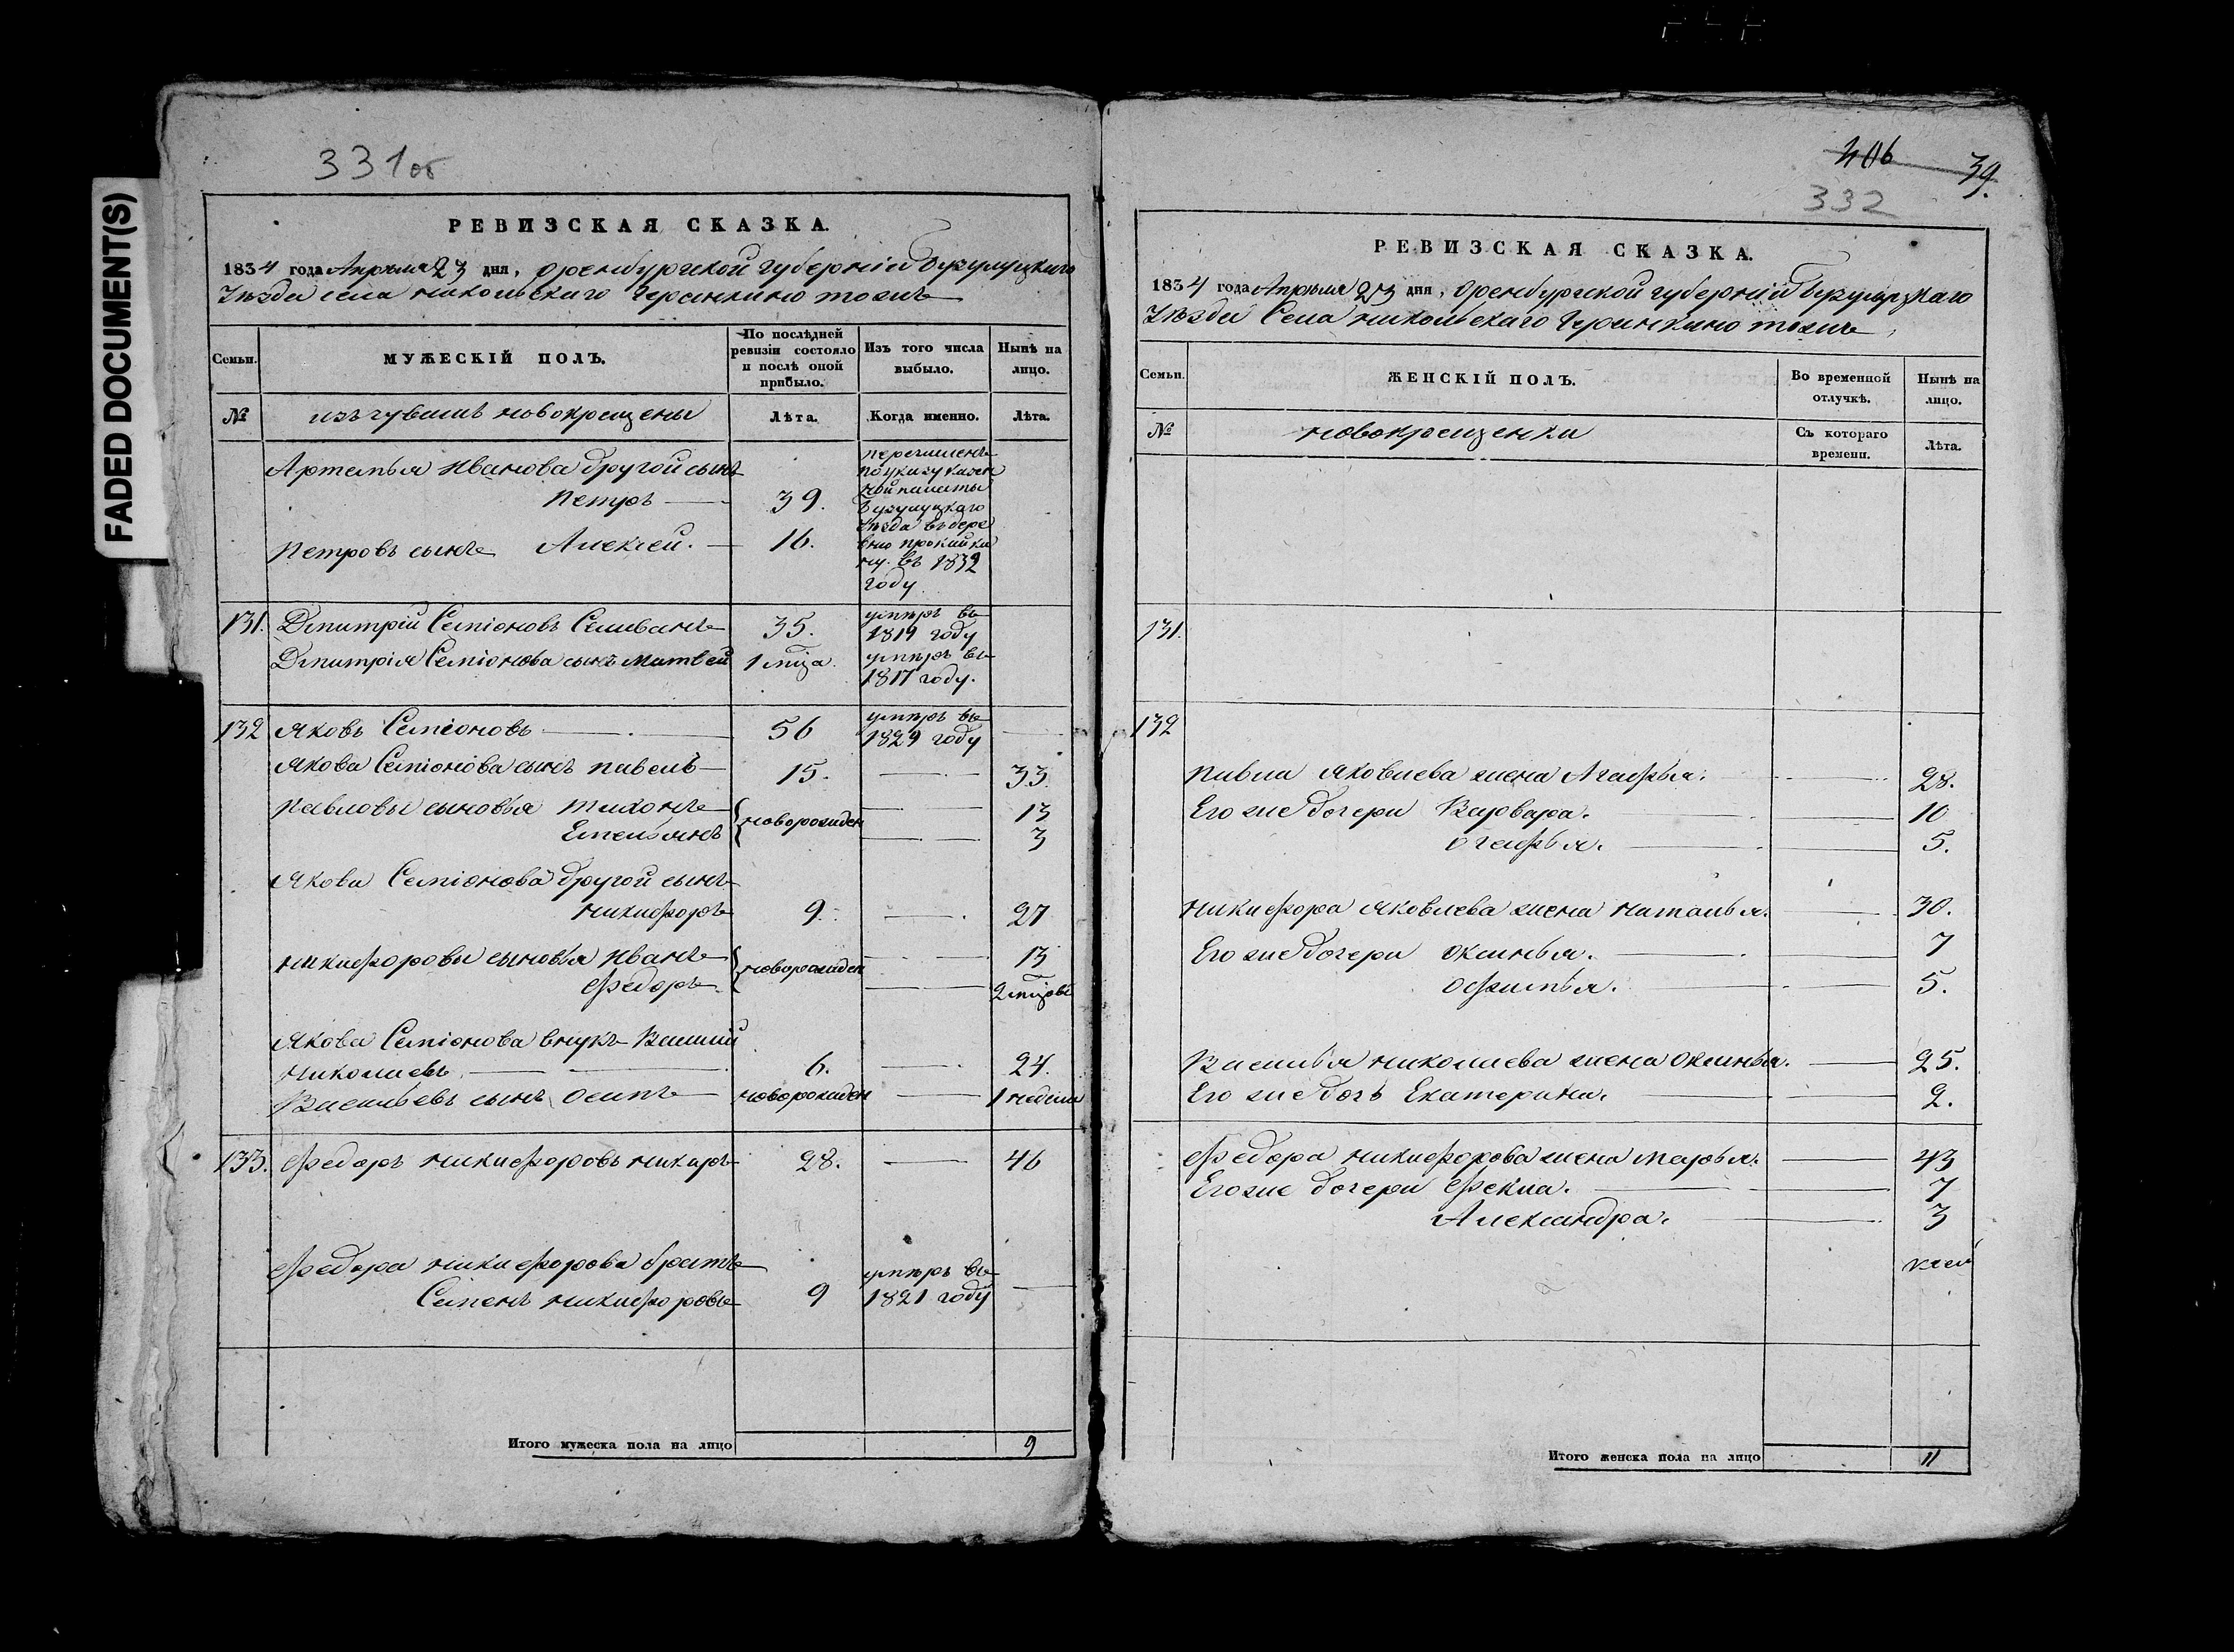 FADED DOCUMENT(S)
331об
РЕВИЗСКАЯ СКАЗКА.
1834 года Апреля 23 дня, Оренбургской губерніи Бузулуцкаго
Уѣзда села Никольскаго Геранкино тожъ
Семьи.
МУЖЕСКІЙ ПОЛЪ.
По послѣдней ревизіи состояло и послѣ оной прибыло.
Изъ того числа выбыло.
Нынѣ на лицо.
№
изъ чувашъ новокрещены
Лѣта.
Когда именно.
Лѣта.
Артемья Иванова другой сынъ
Петръ — 39.
Петровъ сынъ Алексей. — 16.
перечисленъ
по указу казен
ной палаты
Бузулуцкаго
уѣзда въ дере
вню
въ 1832
году
131. Дмитрій Семіоновъ Селиванъ 35. умпръ въ
1819 году
Дмитрія Семіонова сынъ Матвей 1 мца. умпръ въ
1817 году.
132 Яковъ Семіоновъ — 56 умпръ въ
1829 году
Якова Семіонова сынъ Павелъ — 15. — 33.
Павловы сыновья Тихонъ новорожден — 13
Емельянъ — 3
Якова Семіонова другой сынъ
Никифоръ 9. — 27
Никифоровы сыновья Иванъ новорожден — 13
Федоръ — 2 мцовъ
Якова Семіонова внукъ Василий
Николаевъ — 6. — 24.
Васильевъ сынъ Осипъ — новорожден — 1 недели
133. Федоръ Никифоровъ 28. — 46
Федора Никифорова братъ
Семенъ Никифоровъ 9 умпръ въ
1821 году —
Итого мужеска пола на лицо 9
406 39.
332
РЕВИЗСКАЯ СКАЗКА.
1834 года Апреля 23 дня, Оренбургской губерніи Бузулуцкаго
Уѣзда Села Никольскаго Геранкино тожъ
Семьи.
ЖЕНСКІЙ ПОЛЪ.
Во временной отлучкѣ.
Нынѣ на лицо.
№
новокрещенки
Съ котораго времени.
Лѣта.
131.
132
Павла Яковлева жена Агафья. — 28.
Его же дочери Варвара. — 10
Огафья. — 5.
Никифора Яковлева жена Наталья. — 30.
Его же дочери Оксинья. — 7
Офимья. — 5.
Василья Николаева жена Оксинья. — 25.
Его же дочь Екатерина. — 2.
Федора Никифорова жена Марья. — 43
Его же дочери Фекла. — 7
Александра. — 3
Итого женска пола на лицо 11